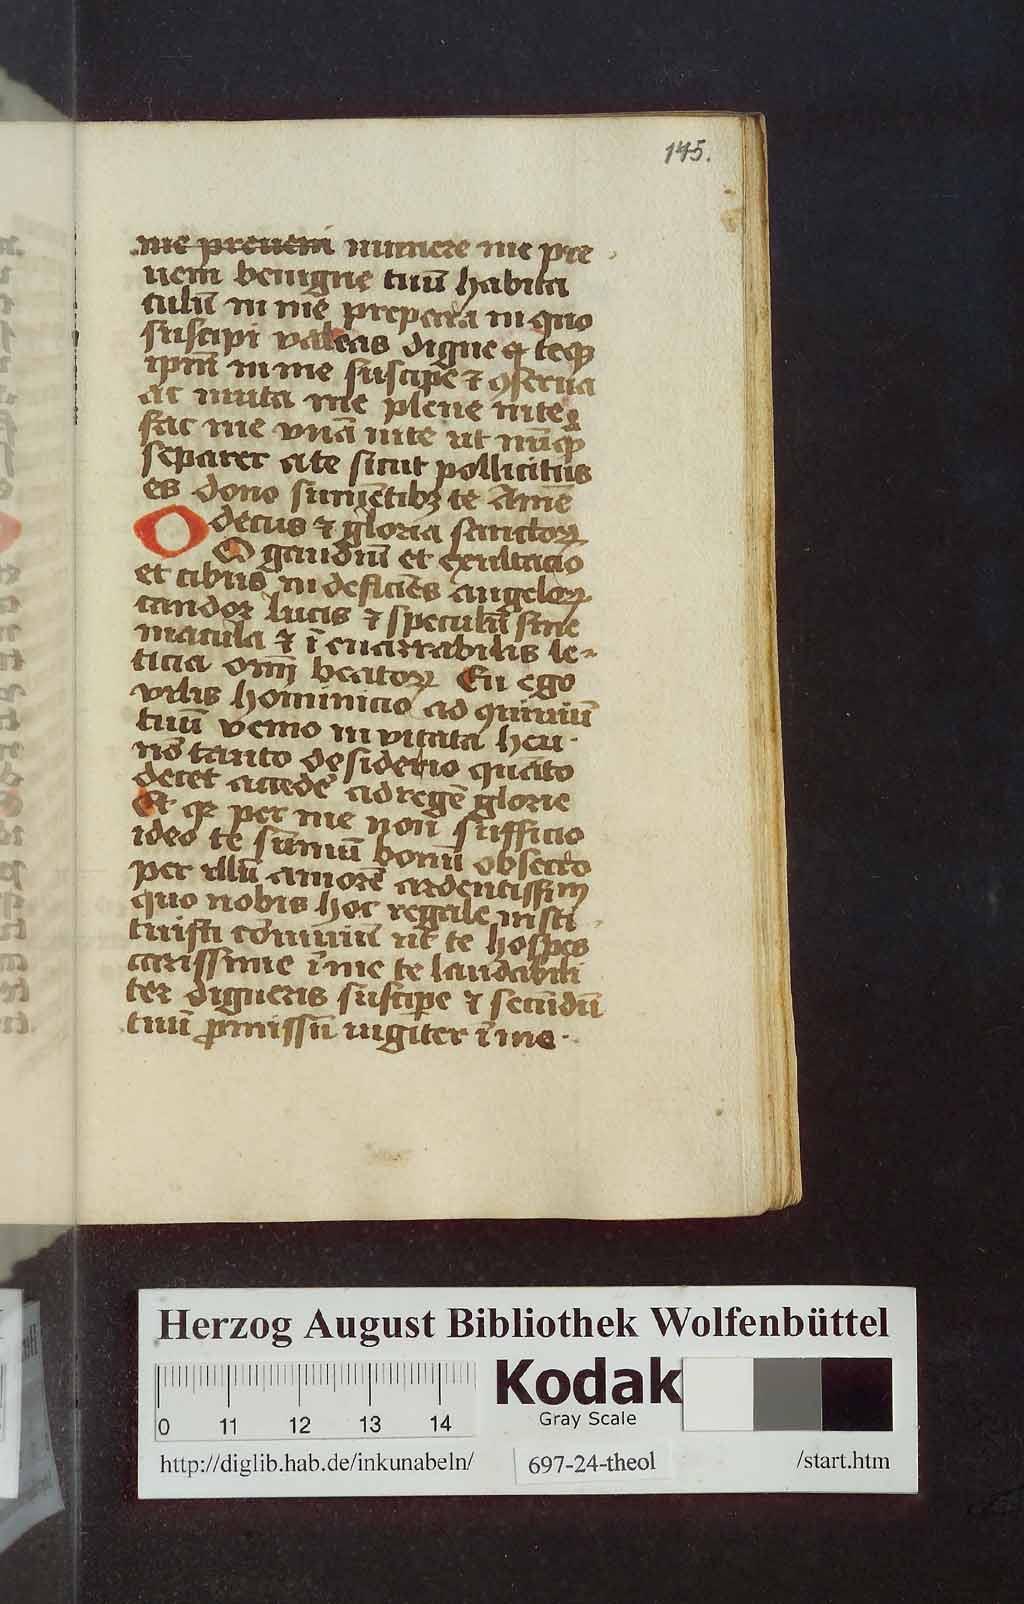 145.
me preueni munere me pre
ueni benigne tuū habita
culū in me prepara in quo
suscipi valeas digne ꝙ teqꝫ
ipm̄ in me suscipe ⁊ ꝯserua
ac muta me plene in te
fac me vnā in te ut nūqꝫ
separer a te sicut pollicitus
es dono sumētibꝫ te Amē
O decus ⁊ gloria sanctoꝝ
O gaudiū et exultacio
et cibus in deficiēs angeloꝝ
candor lucis ⁊ speculū sine
macula ⁊ ī enarrabilis le-
ticia om̄i beatoꝝ En ego
vilis homincio ad ꝯuiuiū
tuū venio in vitata heu
nō tanto desiderio quāto
decet accede ad regē glorie
Et qꝛ per me non sufficio
ideo te sūmū bonū obsecro
per illū amorē ardentissim
quo nobis hoc regale insti
tuisti cōuiuiū ut te hospes
carissime ī me te laudabili
ter digneris suscipe ⁊ secūdū
tuū ꝓmissū iugiter ī me
Herzog August Bibliothek Wolfenbüttel
0 11 12 13 14
Kodak
Gray Scale
http://diglib.hab.de/inkunabeln/ 697-24-theol /start.htm